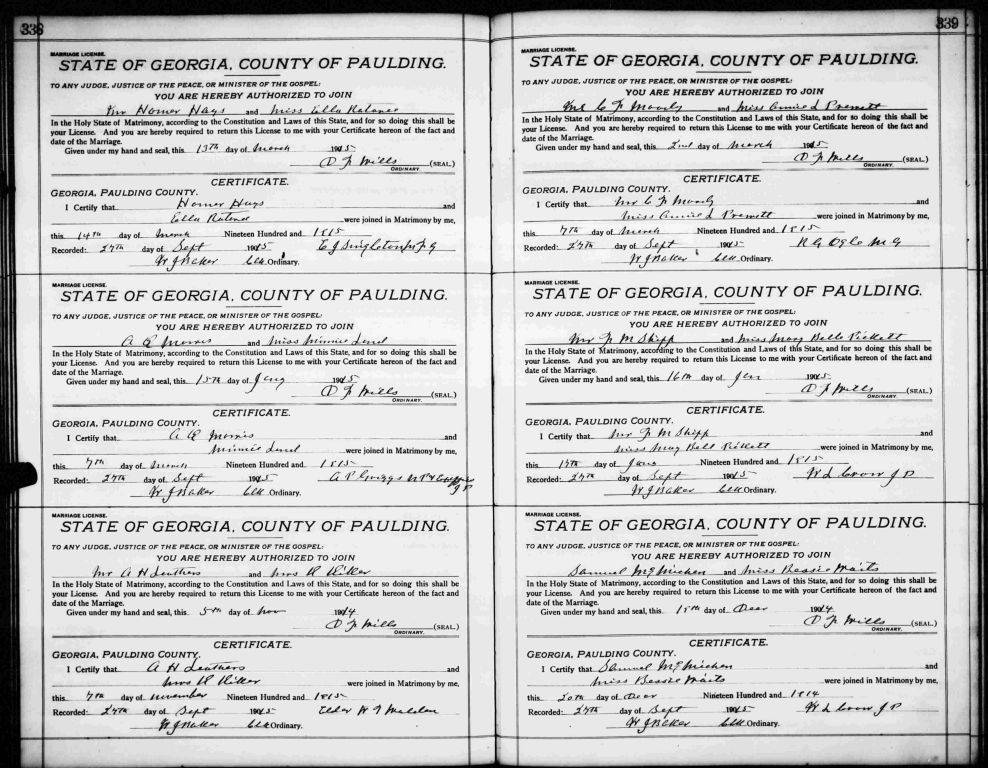 338
MARRIAGE LICENSE.
STATE OF GEORGIA, COUNTY OF PAULDING.
TO ANY JUDGE, JUSTICE OF THE PEACE, OR MINISTER OF THE GOSPEL:
YOU ARE HEREBY AUTHORIZED TO JOIN
Mr Homer Hays and Miss Ella
In the Holy State of Matrimony, according to the Constitution and Laws of this State, and for so doing this shall be
your License. And you are hereby required to return this License to me with your Certificate hereon of the fact and
date of the Marriage.
Given under my hand and seal, this 13th day of March 1915
D F Wills (SEAL.)
ORDINARY.
CERTIFICATE.
GEORGIA, PAULDING COUNTY.
I Certify that Homer Hays and
Ella were joined in Matrimony by me,
this 14th day of March Nineteen Hundred and 1815
Recorded: 27th day of Sept 1915 E J Singleton
W J Baker Clk Ordinary.
MARRIAGE LICENSE.
STATE OF GEORGIA, COUNTY OF PAULDING.
TO ANY JUDGE, JUSTICE OF THE PEACE, OR MINISTER OF THE GOSPEL:
YOU ARE HEREBY AUTHORIZED TO JOIN
Morris and Miss Minnie
In the Holy State of Matrimony, according to the Constitution and Laws of this State, and for so doing this shall be
your License. And you are hereby required to return this License to me with your Certificate hereon of the fact and
date of the Marriage.
Given under my hand and seal, this 15th day of 1915
D F Wills (SEAL.)
ORDINARY.
CERTIFICATE.
GEORGIA, PAULDING COUNTY.
I Certify that Morris and
Minnie were joined in Matrimony by me,
this 7th day of March Nineteen Hundred and 1815
Recorded: 27th day of Sept 1915 A P Griggs
W J Baker Clk Ordinary. J P
MARRIAGE LICENSE.
STATE OF GEORGIA, COUNTY OF PAULDING.
TO ANY JUDGE, JUSTICE OF THE PEACE, OR MINISTER OF THE GOSPEL:
YOU ARE HEREBY AUTHORIZED TO JOIN
Mr A H Leathers and Mrs
In the Holy State of Matrimony, according to the Constitution and Laws of this State, and for so doing this shall be
your License. And you are hereby required to return this License to me with your Certificate hereon of the fact and
date of the Marriage.
Given under my hand and seal, this 5th day of Nov 1914
D F Wills (SEAL.)
ORDINARY.
CERTIFICATE.
GEORGIA, PAULDING COUNTY.
I Certify that A H Leathers and
Mrs were joined in Matrimony by me,
this 7th day of November Nineteen Hundred and 1815
Recorded: 27th day of Sept 1915 Elder
W J Baker Clk Ordinary.
339
MARRIAGE LICENSE.
STATE OF GEORGIA, COUNTY OF PAULDING.
TO ANY JUDGE, JUSTICE OF THE PEACE, OR MINISTER OF THE GOSPEL:
YOU ARE HEREBY AUTHORIZED TO JOIN
Mr C F Moody and Miss Annie L Prewett
In the Holy State of Matrimony, according to the Constitution and Laws of this State, and for so doing this shall be
your License. And you are hereby required to return this License to me with your Certificate hereon of the fact and
date of the Marriage.
Given under my hand and seal, this 2nd day of March 1915
D F Wills (SEAL.)
ORDINARY.
CERTIFICATE.
GEORGIA, PAULDING COUNTY.
I Certify that Mr C F Moody and
Miss Annie L Prewett were joined in Matrimony by me,
this 7th day of March Nineteen Hundred and 1815
Recorded: 27th day of Sept 1915 R G Ogle M G
W J Baker Clk Ordinary.
MARRIAGE LICENSE.
STATE OF GEORGIA, COUNTY OF PAULDING.
TO ANY JUDGE, JUSTICE OF THE PEACE, OR MINISTER OF THE GOSPEL:
YOU ARE HEREBY AUTHORIZED TO JOIN
Mr F M Shipp and Miss Mary Belle Pickett
In the Holy State of Matrimony, according to the Constitution and Laws of this State, and for so doing this shall be
your License. And you are hereby required to return this License to me with your Certificate hereon of the fact and
date of the Marriage.
Given under my hand and seal, this 16th day of Jan 1915
D F Wills (SEAL.)
ORDINARY.
CERTIFICATE.
GEORGIA, PAULDING COUNTY.
I Certify that Mr F M Shipp and
Miss May Bell Pickett were joined in Matrimony by me,
this 17th day of Nineteen Hundred and 1815
Recorded: 27th day of Sept 1915 W L Croon J P
W J Baker Clk Ordinary.
MARRIAGE LICENSE.
STATE OF GEORGIA, COUNTY OF PAULDING.
TO ANY JUDGE, JUSTICE OF THE PEACE, OR MINISTER OF THE GOSPEL:
YOU ARE HEREBY AUTHORIZED TO JOIN
Samuel McMichen and Miss Bessie Waits
In the Holy State of Matrimony, according to the Constitution and Laws of this State, and for so doing this shall be
your License. And you are hereby required to return this License to me with your Certificate hereon of the fact and
date of the Marriage.
Given under my hand and seal, this 15th day of 1914
D F Wills (SEAL.)
ORDINARY.
CERTIFICATE.
GEORGIA, PAULDING COUNTY.
I Certify that Samuel McMichen and
Miss Bessie Waits were joined in Matrimony by me,
this 20th day of Nineteen Hundred and 1814
Recorded: 27th day of Sept 1915 W L Croon J P
W J Baker Clk Ordinary.